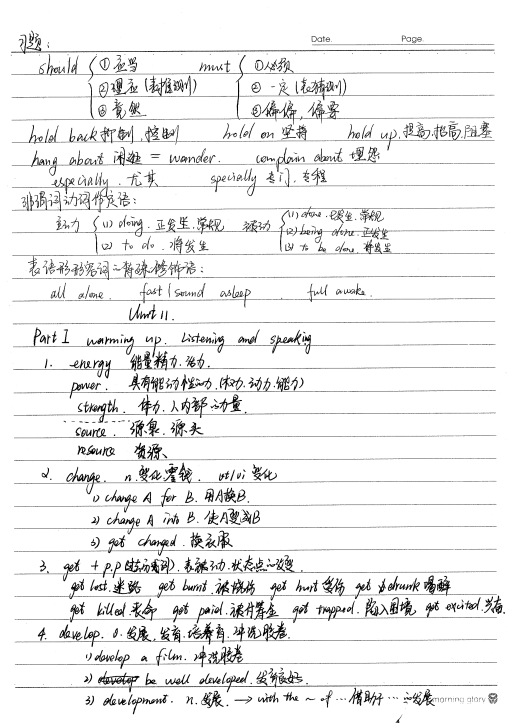 Date. Page.
习题：
should ① 应当 must ① 必须
② 理应（表推测） ② 一定（表猜测）
③ 竟然 ③ 偏偏，偏要
hold back 抑制，控制 hold on 坚持 hold up 提高，抬高，阻塞
hang about 闲逛 = wander. complain about 埋怨
especially. 尤其 specially 专门，专程
非谓语动词作定语：
主动 (1) doing. 正发生，常规 被动 (1) done. 已发生，常规
(2) to do. 将发生 (2) being done. 正发生
(3) to be done. 将发生
表语形容词的特殊修饰语：
all alone. fast / sound asleep. full awake.
Unit 11.
Part I warming up. Listening and speaking
1. energy 能量，精力，活力.
power. 具有能动性的力（权力，动力，能力）
strength. 体力，人内部的力量.
source. 源泉，源头
resource 资源
2. change. n. 变化，零钱. vt/vi 变化
1) change A for B. 用A换B.
2) change A into B. 使A变成B
3) get changed. 换衣服
3. get + p.p (过去分词). 表被动，状态点的改变.
get lost. 迷路 get burnt. 被烧伤 get hurt 受伤 get drunk 喝醉
get killed. 丧命 get paid. 被付薪金 get trapped. 陷入困境 get excited. 兴奋.
4. develop. v. 发展，发育，培养，冲洗胶卷.
1) develop a film. 冲洗胶卷
2) be well developed. 发育良好.
3) development. n. 发展. → with the ~ of … 借助于…的发展
morning glory